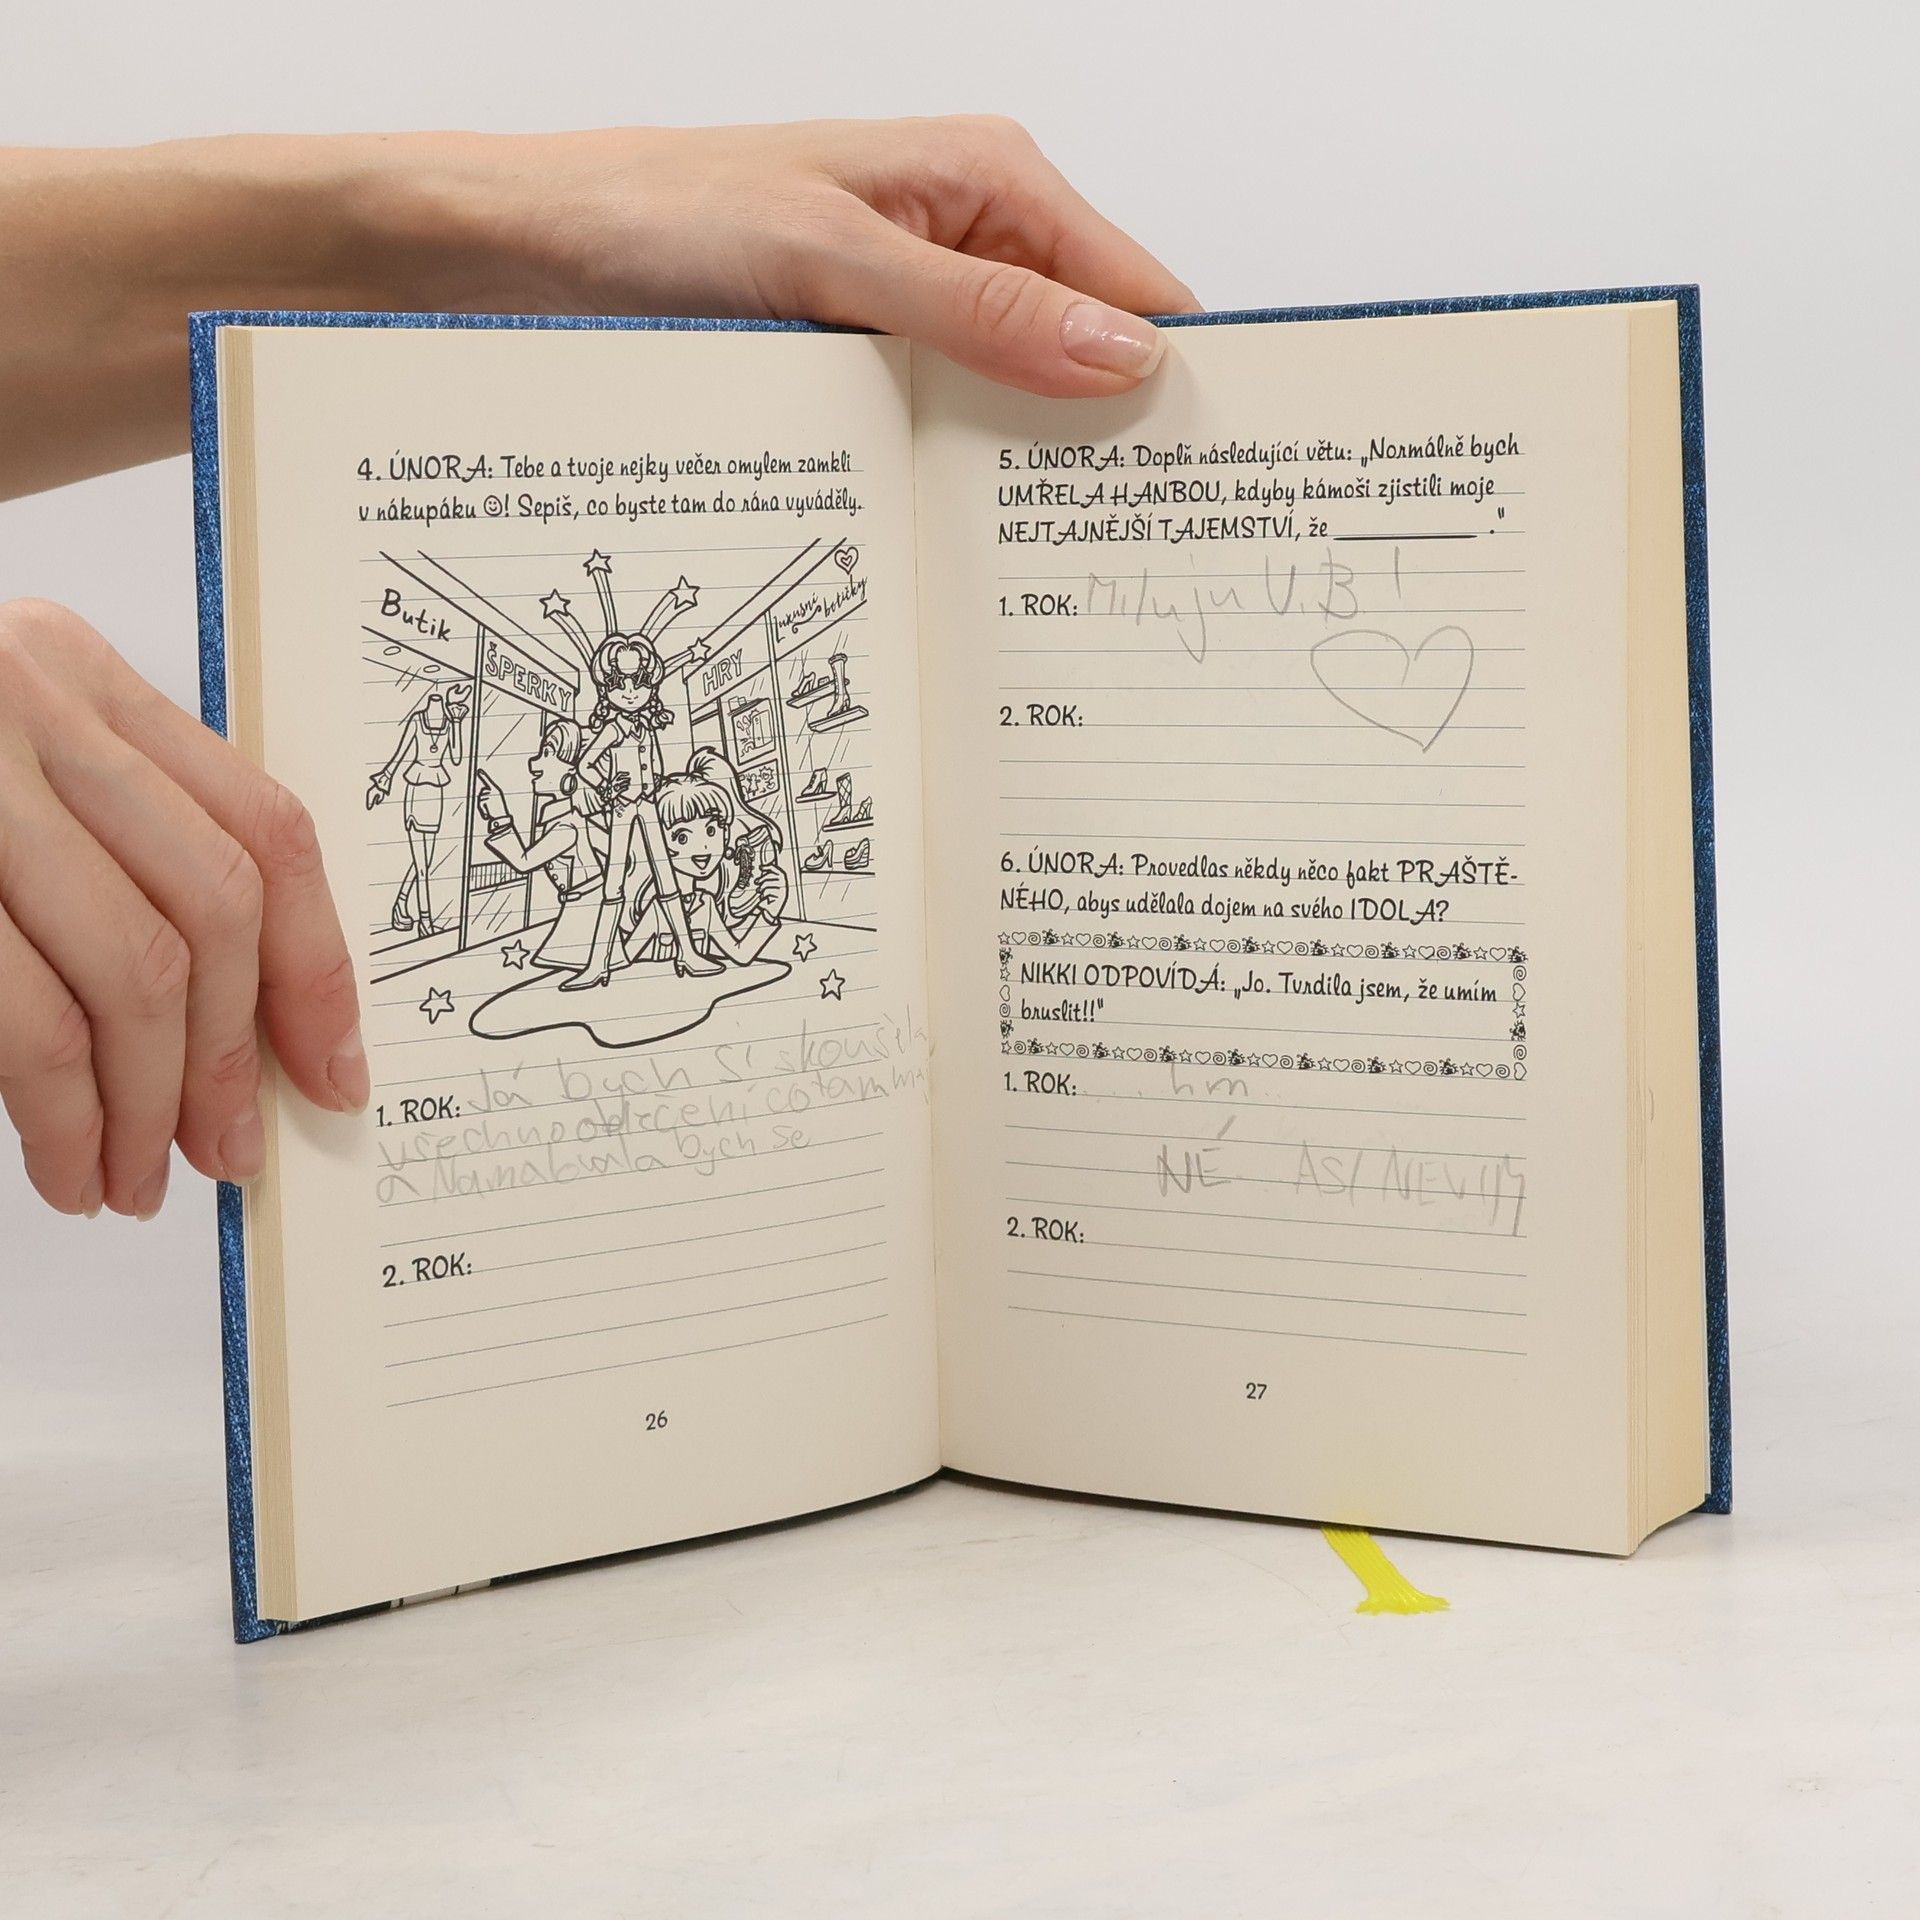 4. ÚNORA: Tebe a tvoje nejky večer omylem zamkli
v nákupáku ☺! Sepiš, co byste tam do rána vyváděly.
Butik
ŠPERKY
HRY
Luxusní
botičky
1. ROK: Já bych si skoušela
všechno oblečení co tam
a Namalovala bych se
2. ROK:
26
5. ÚNORA: Doplň následující větu: „Normálně bych
UMŘELA HANBOU, kdyby kámoši zjistili moje
NEJTAJNĚJŠÍ TAJEMSTVÍ, že ____________ ."
1. ROK: Miluju V.B!
2. ROK:
6. ÚNORA: Provedlas někdy něco fakt PRAŠTĚ-
NÉHO, abys udělala dojem na svého IDOLA?
NIKKI ODPOVÍDÁ: „Jo. Tvrdila jsem, že umím
bruslit!!"
1. ROK: .... hm...
NÉ... ASI NEVIM
2. ROK:
27